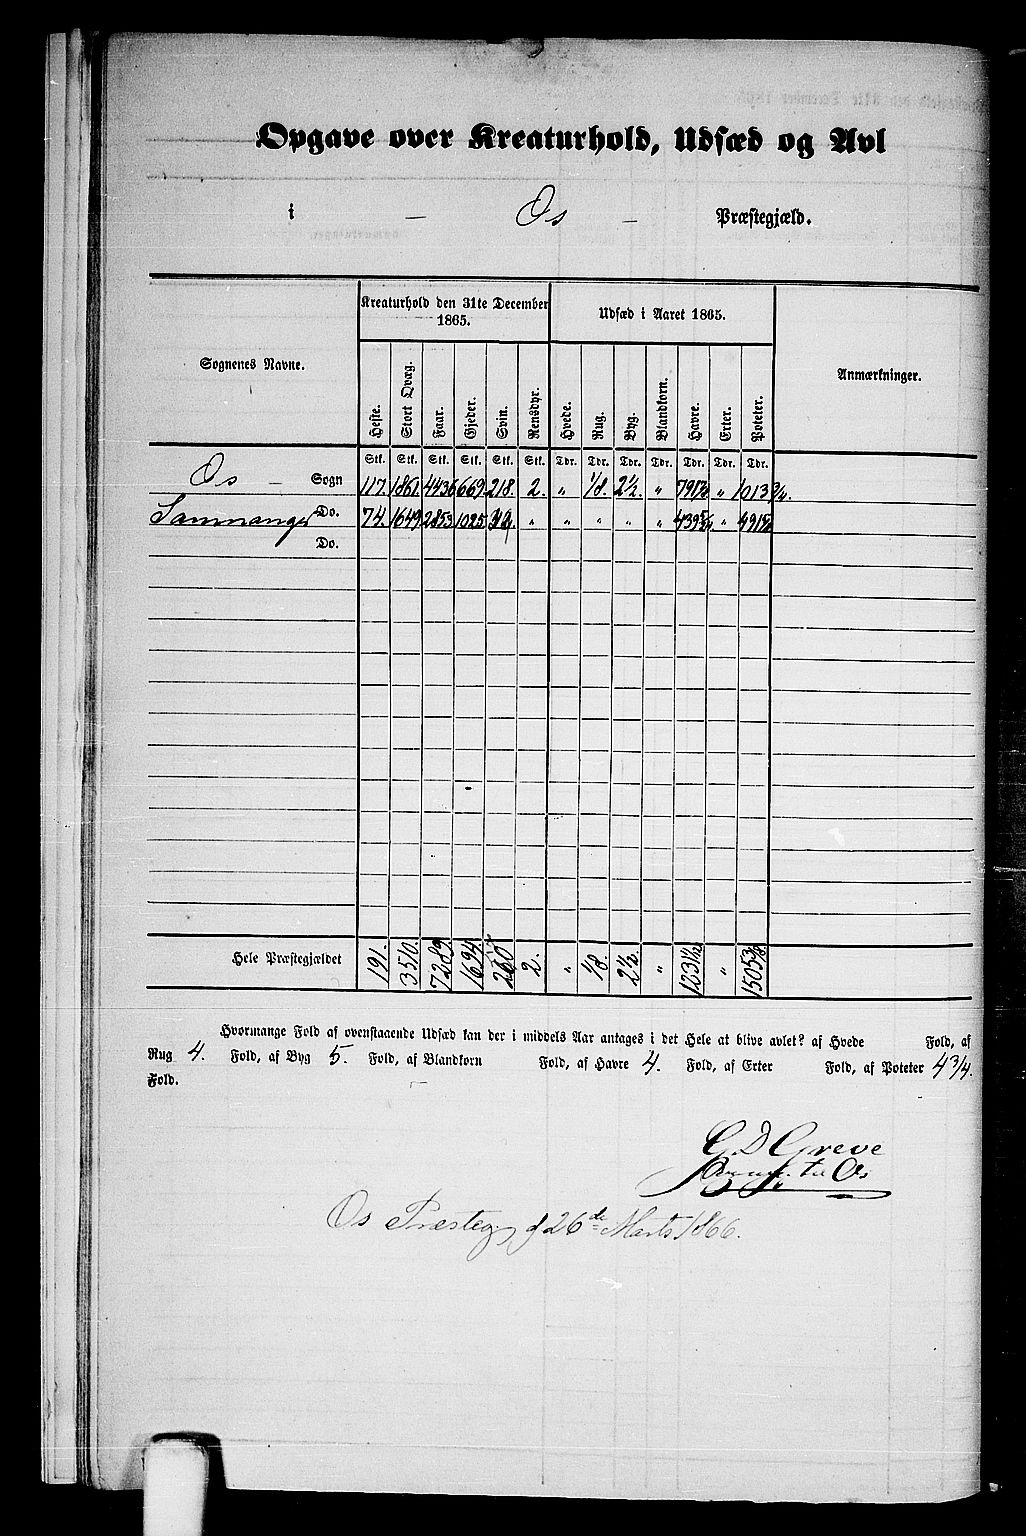 Opgave over Kreaturhold, Udsæd og Avl
i - Os - Præstegjæld.
Sognenes Navne.
Kreaturhold den 31te December 1865.
Udsæd i Aaret 1865.
Anmærkninger.
Heste. Stort Qvæg. Faar. Gjeder. Svin. Rensdyr. Hvede. Rug. Byg. Blandkorn. Havre. Erter. Poteter.
Stk. Stk. Stk. Stk. Stk. Stk. Tdr. Tdr. Tdr. Tdr. Tdr. Tdr. Tdr.
Os - Sogn 117. 1861. 4436 669. 218. 2. " 1/8. 2½. " " 1013 3/4.
Samnanger Do. 74. 1649 2853 1025 " " " " " "
Do.
Hele Præstegjældet 191. 3510. 7289. 1694. 2. " 1/8. 2½. " "
Hvormange Fold af ovenstaaende Udsæd kan der i middels Aar antages i det Hele at blive avlet? af Hvede Fold, af
Rug 4. Fold, af Byg 5. Fold, af Blandkorn Fold, af Havre 4. Fold, af Erter Fold, af Poteter 4 3/4.
Fold.
G D Greve
til Os
Os Præsteg. d 26de Marts 1866.